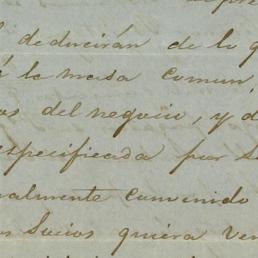 deducirán de lo q
á la masa comun
os del negocio, y d
especificada por S
ualmente convenido
os Socios quiera ven